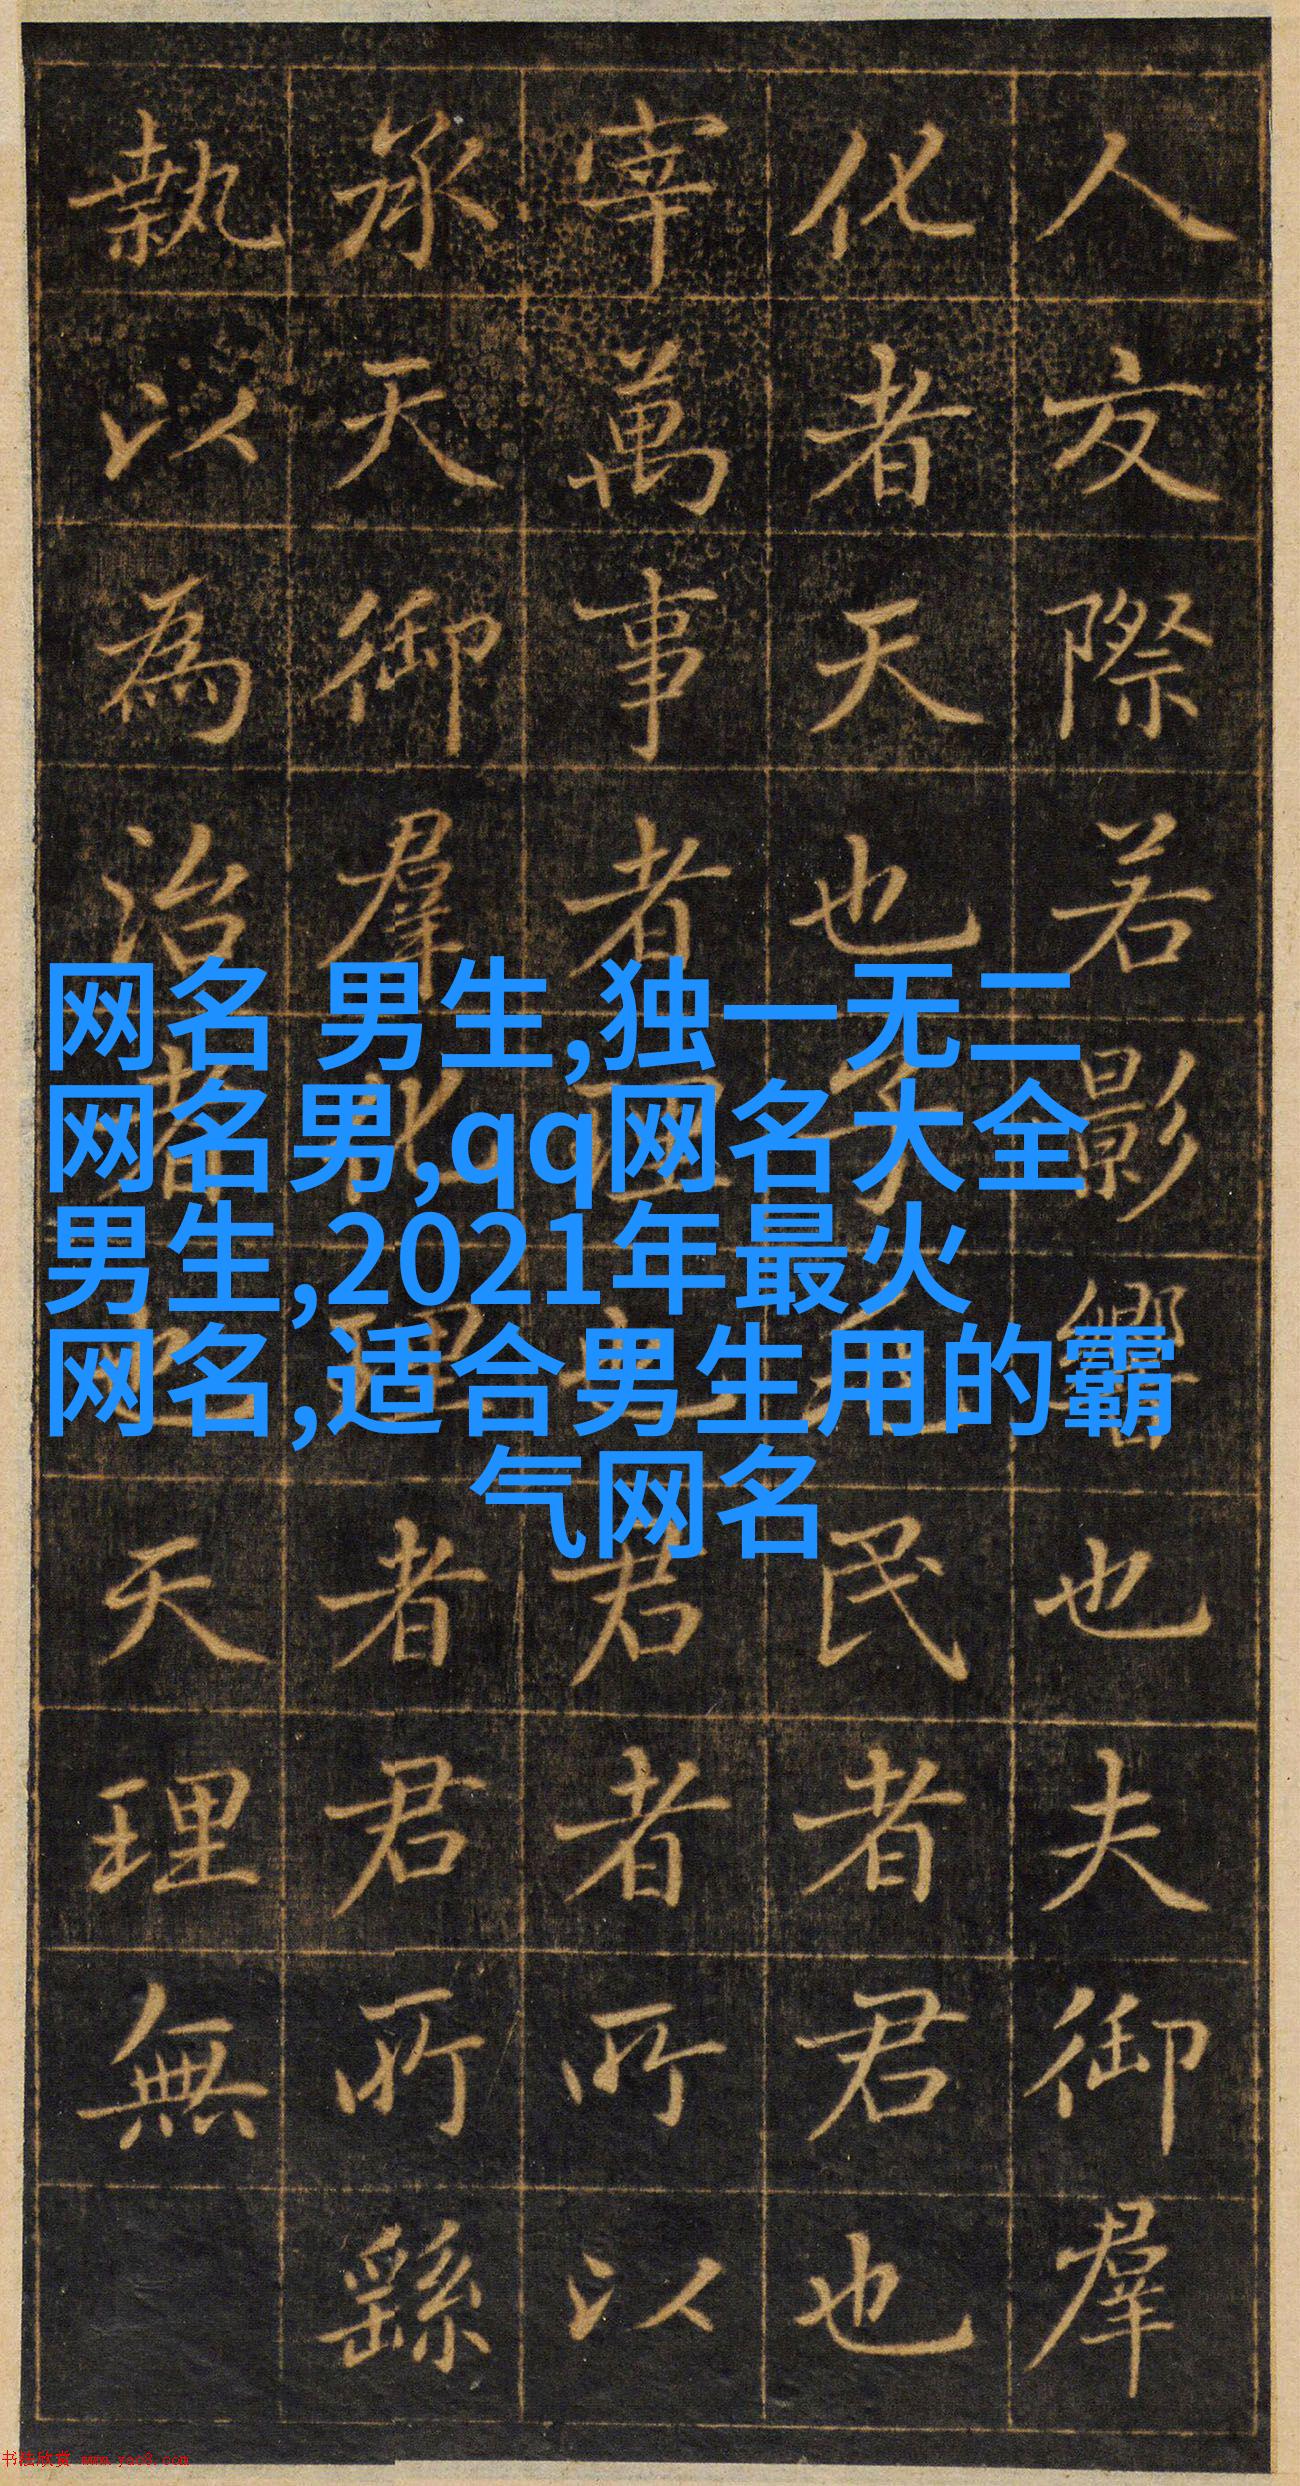 网名 男生,独一无二
网名男,qq网名大全
男生,2021年最火
网名,适合男生用的霸
气网名
人友際若影響也夫御羣
化者天也子民者君也
宰萬事者理也君者所以
承天御羣化理者君所繇
執以為治者也天理無
书法欣赏 www.yac8.com